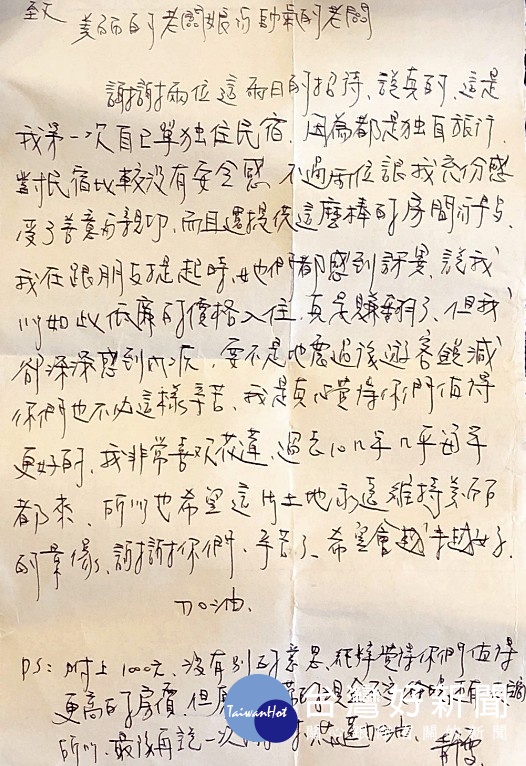 至文
美麗的老闆娘与帥氣的老闆
謝謝兩位這兩日的招待、說真的、這是
我第一次自己單独住民宿、因為都是独自旅行、
對民宿比較沒有安全感、不過兩位讓我充份感
受了善意与親切、而且還提供這麼棒的房間
我在跟朋友提起時、她們都感到訝異、說我
以如此低廉的價格入住、真是賺翻了、但我
卻深深感到內疚、要不是地震過後遊客銳減
你們也不必這樣辛苦、我是真心覺得你們值得
更好的、我非常喜欢花蓮、過去10几年几乎每年
都來、所以也希望這片土地永遠維持美丽
的景像、謝謝你們、辛苦了、希望會越來越好.
加油.
PS: 附上1000元、沒有別的意思、純粹覺得你們值得
更高的房價、但
所以、最後再說一次
TaiwanHot
台灣好新聞